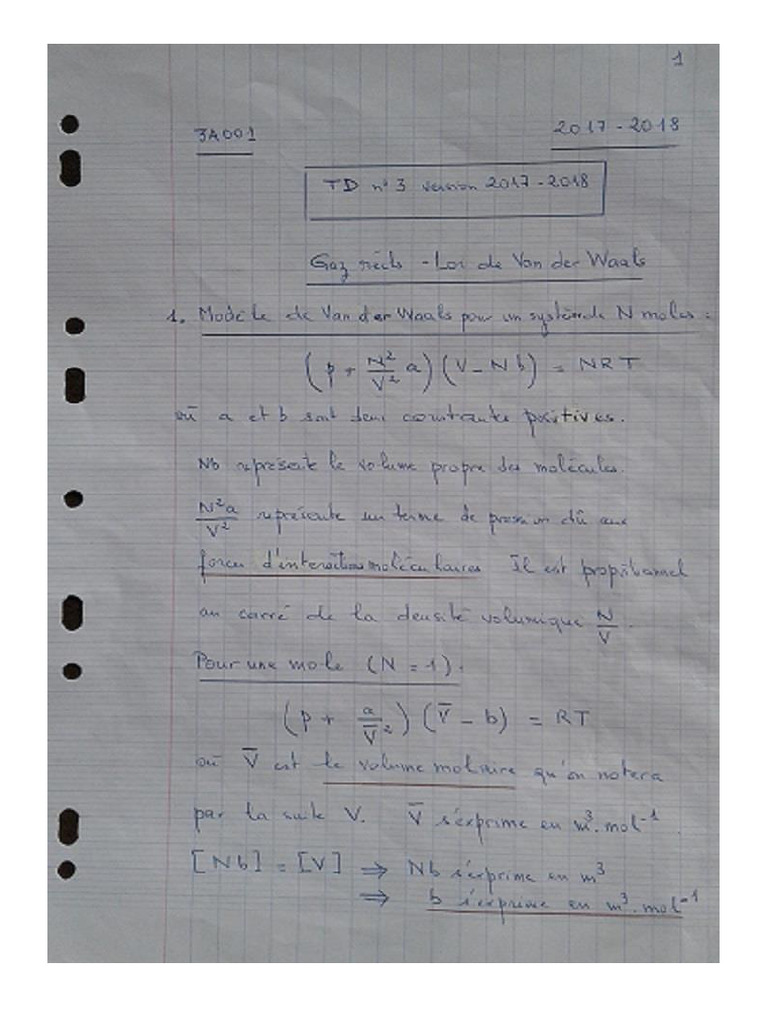 1
3A001
2017-2018
TD n°3 version 2017-2018
Gaz réels - Loi de Van der Waals
1. Modèle de Van der Waals pour un système de N moles :
(p + N²/V² a) (V - Nb) = NRT
où a et b sont deux constantes positives.
Nb représente le volume propre des molécules.
N²a/V² représente un terme de pression dû aux
forces d'interactions moléculaires Il est proportionnel
au carré de la densité volumique N/V.
Pour une mole (N = 1).
(p + a/V̄²) (V̄ - b) = RT
où V̄ est le volume molaire qu'on notera
par la suite V. V̄ s'exprime en m³.mol⁻¹.
[Nb] = [V] ⇒ Nb s'exprime en m³
⇒ b s'exprime en m³.mol⁻¹